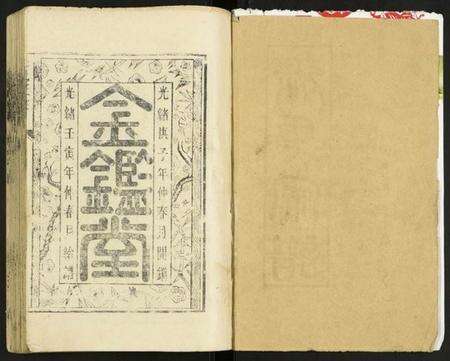 光緒庚子年仲春月開鐫
金鑑堂
光緒壬寅年仲春日